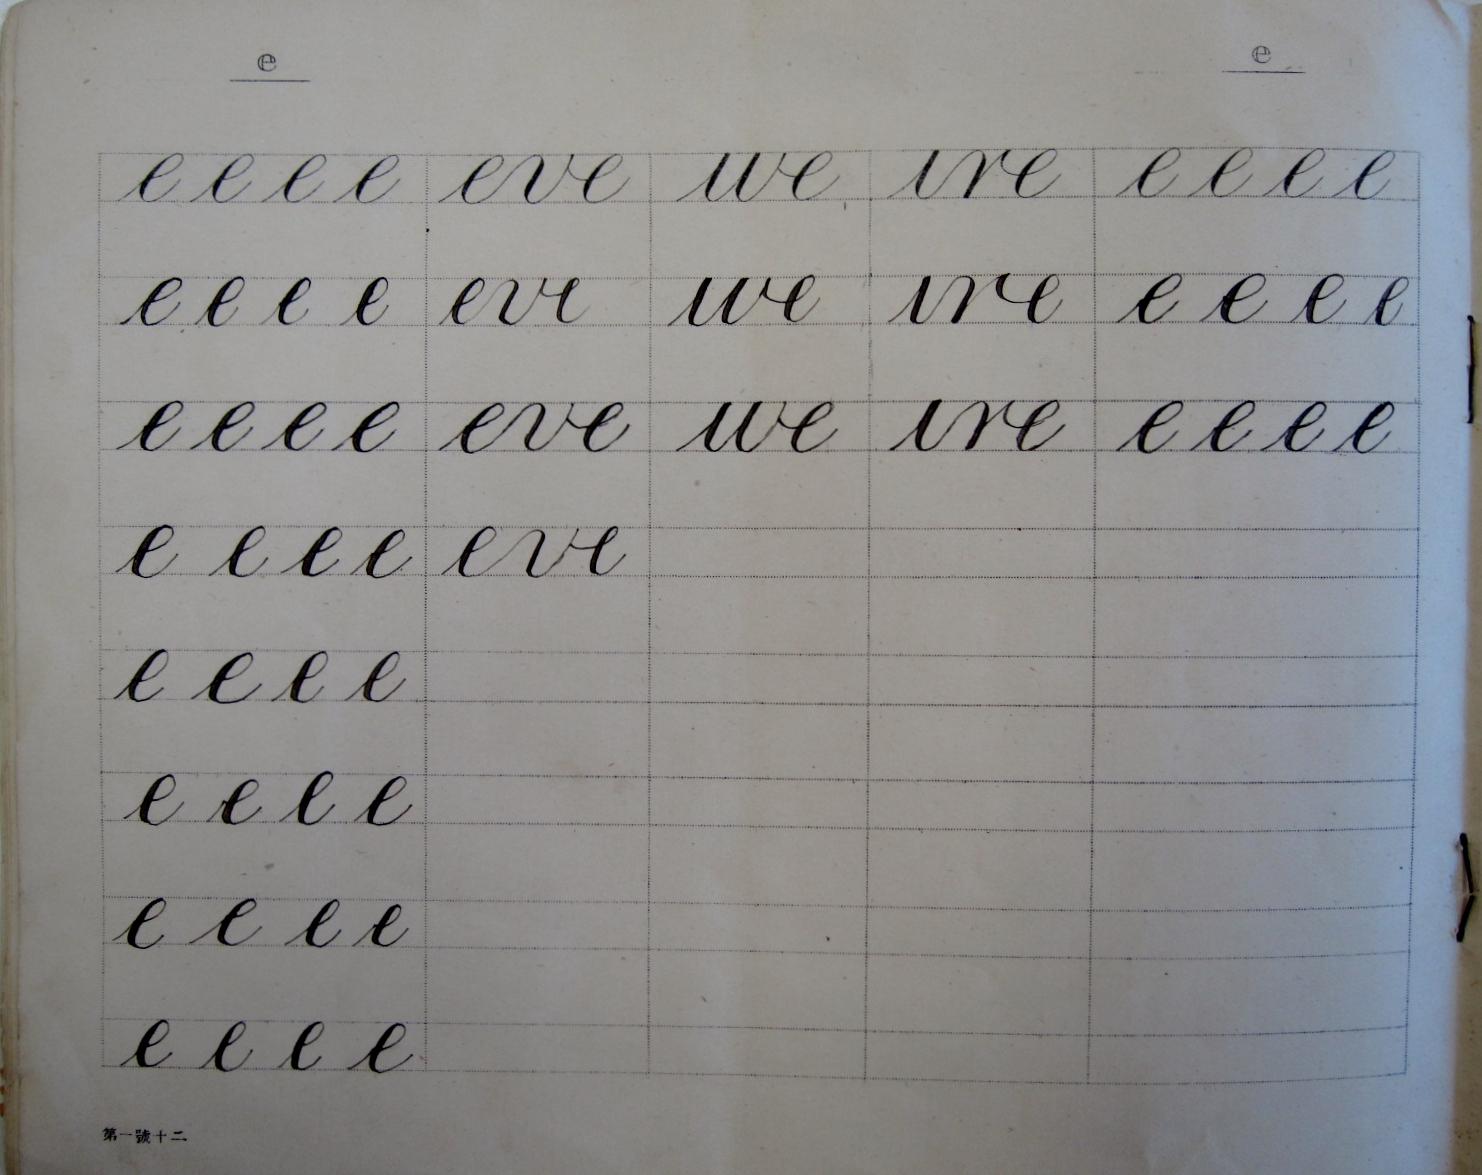 e e
e e e e eve we ire e e e e
e e e e eve we ire e e e e
e e e e eve we ire e e e e
e e e e eve
e e e e
e e e e
e e e e
e e e e
第一號十二